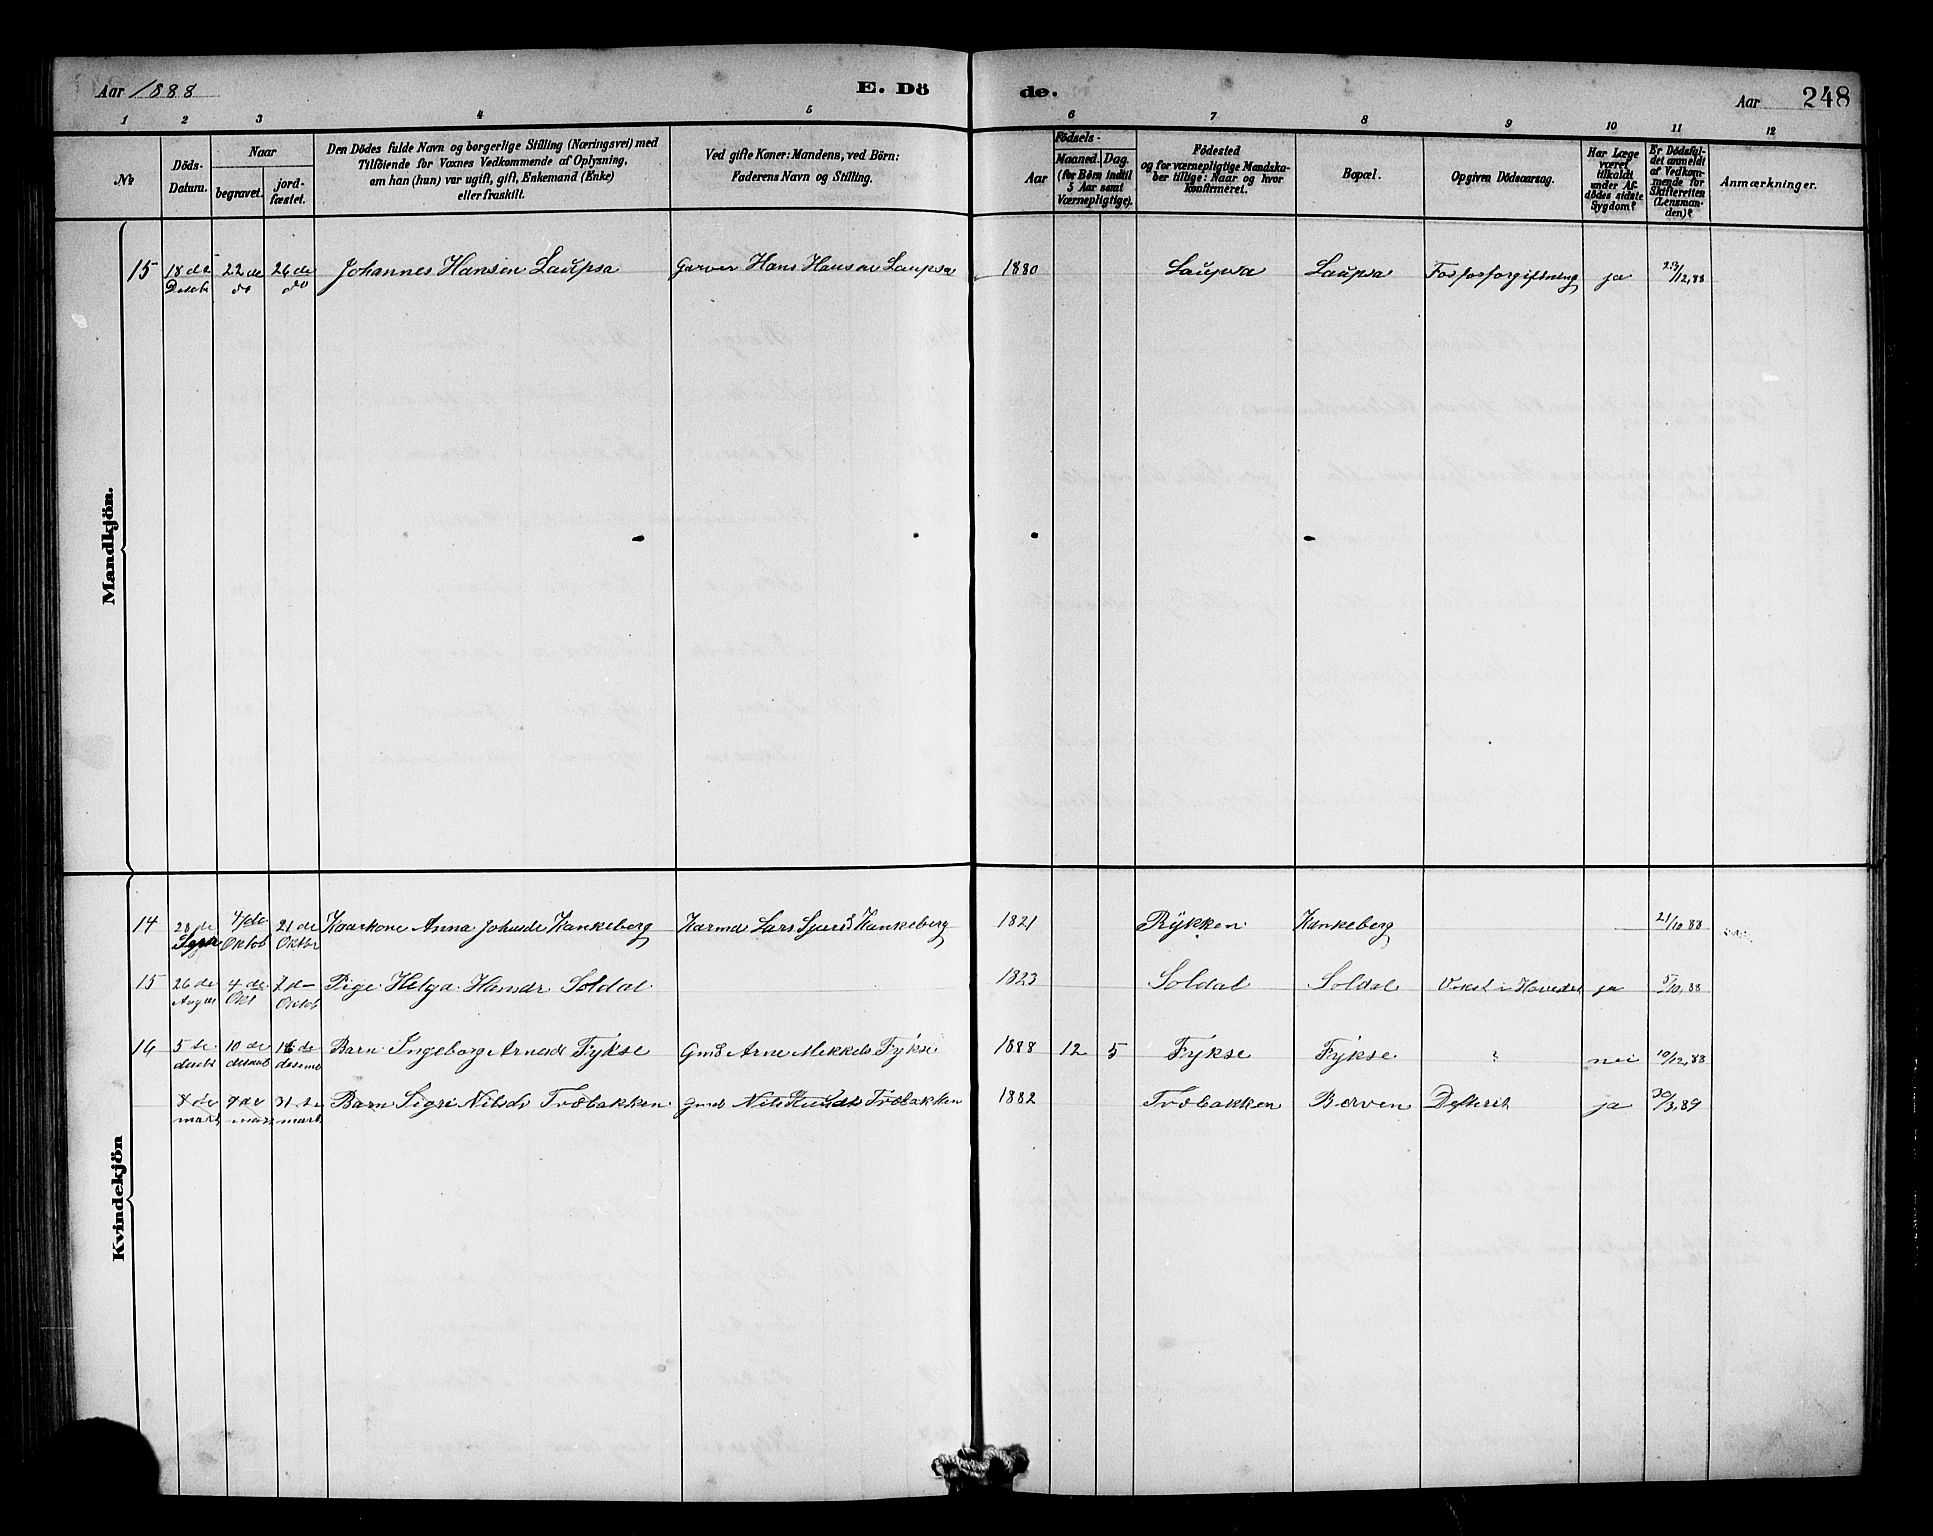 Aar 1888
E. Dö
de.
Aar 248
1 2 3 4 5 6 7 8 9 10 11 12
No
Döds-
Datum.
Naar
begravet.
jord-
fæstet.
Den Dödes fulde Navn og borgerlige Stilling (Næringsvei) med
Tilföiende for Voxnes Vedkommende af Oplysning,
om han (hun) var ugift, gift, Enkemand (Enke)
eller fraskilt.
Ved gifte Koner: Mandens, ved Börn:
Faderens Navn og Stilling.
Födsels-
Aar
Maaned. Dag.
(for Börn indtil
5 Aar samt
Værnepligtige).
Födested
og for værnepligtige Mandska-
ber tillige: Naar og hvor
konfirmeret.
Bopæl.
Opgiven Dödsaarsag.
Har Læge
været
tilkaldt
under Af-
dödes sidste
Sygdom?
Er Dödsfal-
det anmeldt
af Vedkom-
mende for
Skifteretten
(Lensman-
den)?
Anmærkninger.
Mandkjön.
15 18de 22de 26de Johannes Hansen Laupsa Garver Hans Hansen Laupsa 1880 Laupsa Laupsa Fosforforgiftning ja 23/12,88
Desbr do do
Kvindekjön
14 4/de 21de Kaarkone Anna Johnsde Kankeberg Lars Kankeberg 1821 Rykken Kankeberg 21/10 88
Oktob Oktbr
15 26de 4de 7de Pige Helga Hansdr Soldal 1823 Soldal Soldal i Hovedet ja 5/10,88
Okt Oktob
16 5te 10de 16de Barn Ingeborg Arnesd Fykse Gmd Arne Mikkels Fykse 1888 12 5 Fykse Fykse " nei 10/12,88
desbr desemb desemb
8de 31te Barn Sigri Nilsdr Trobakken gmd Nils Trobakken 1882 Trobakken Berven Defterit ja 30/3,89
marts mars marts